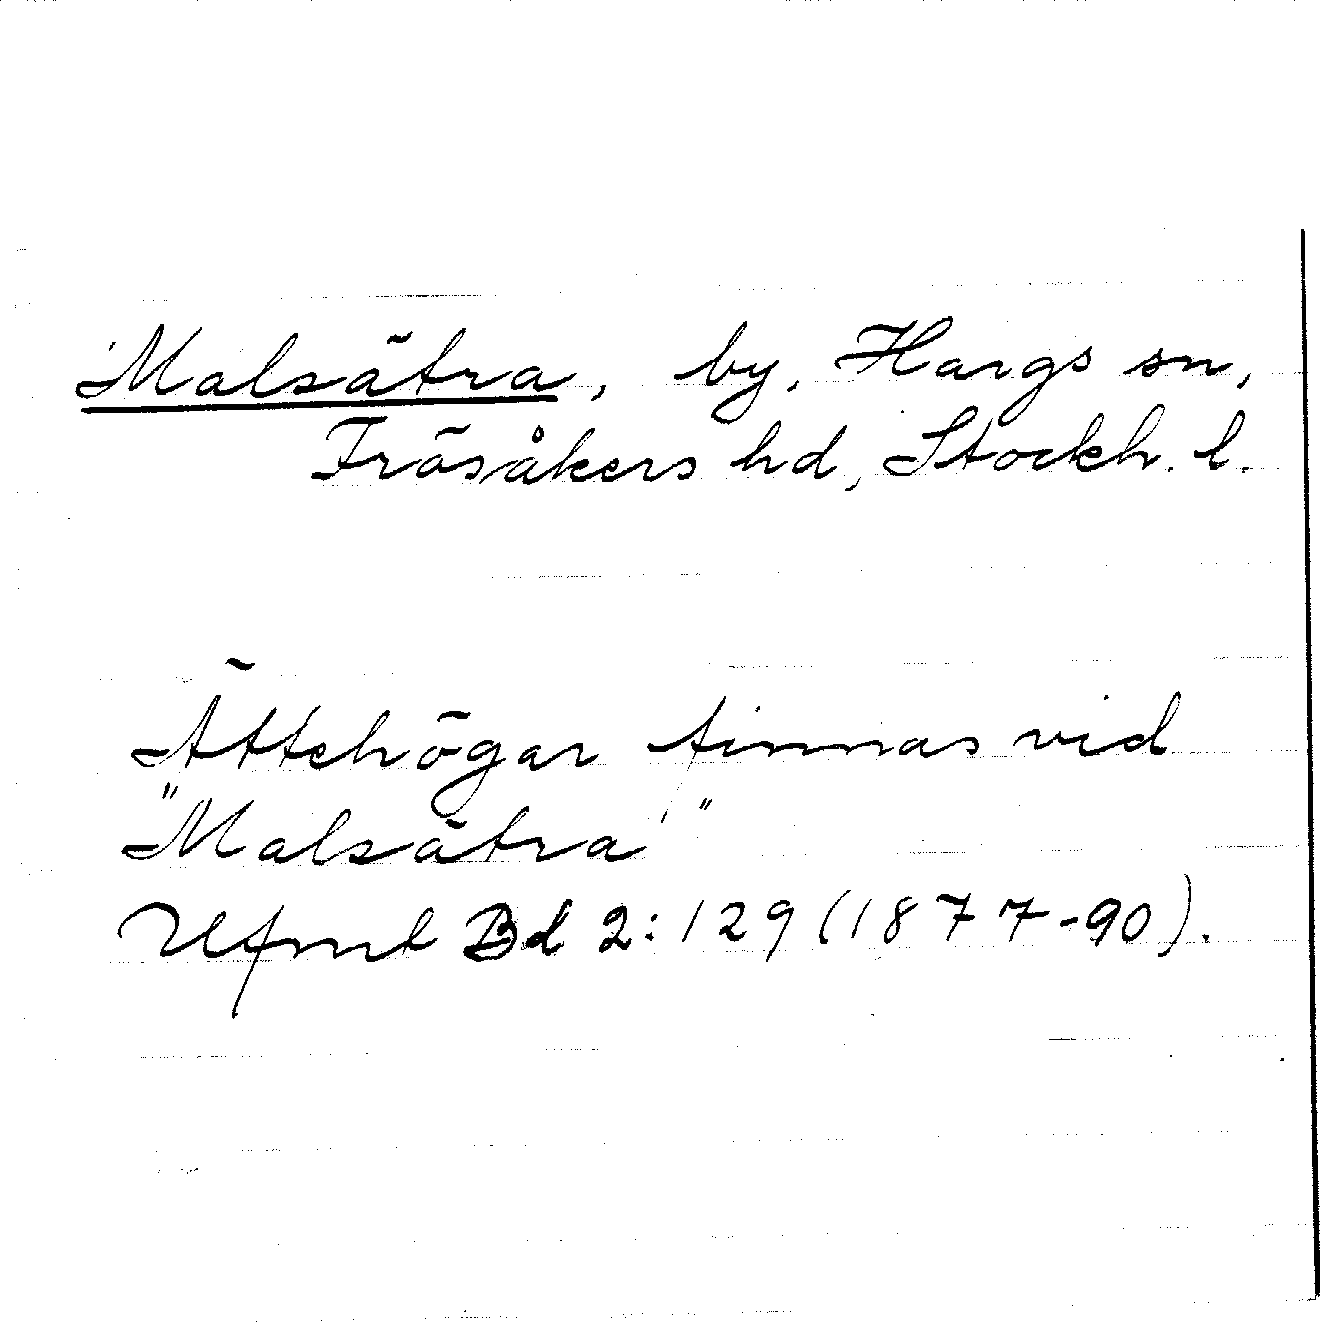 Malsätra, by, Hargs sn,
Frösåkers hd, Stockh. l.
Ättehögar finnas vid
"Malsätra"
Ufmt Bd 2:129 (1877-90).